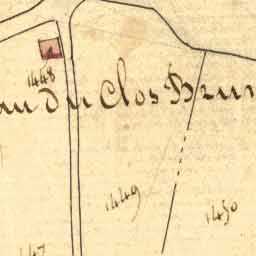 1448
au du Clos Brun
1449
1450
147